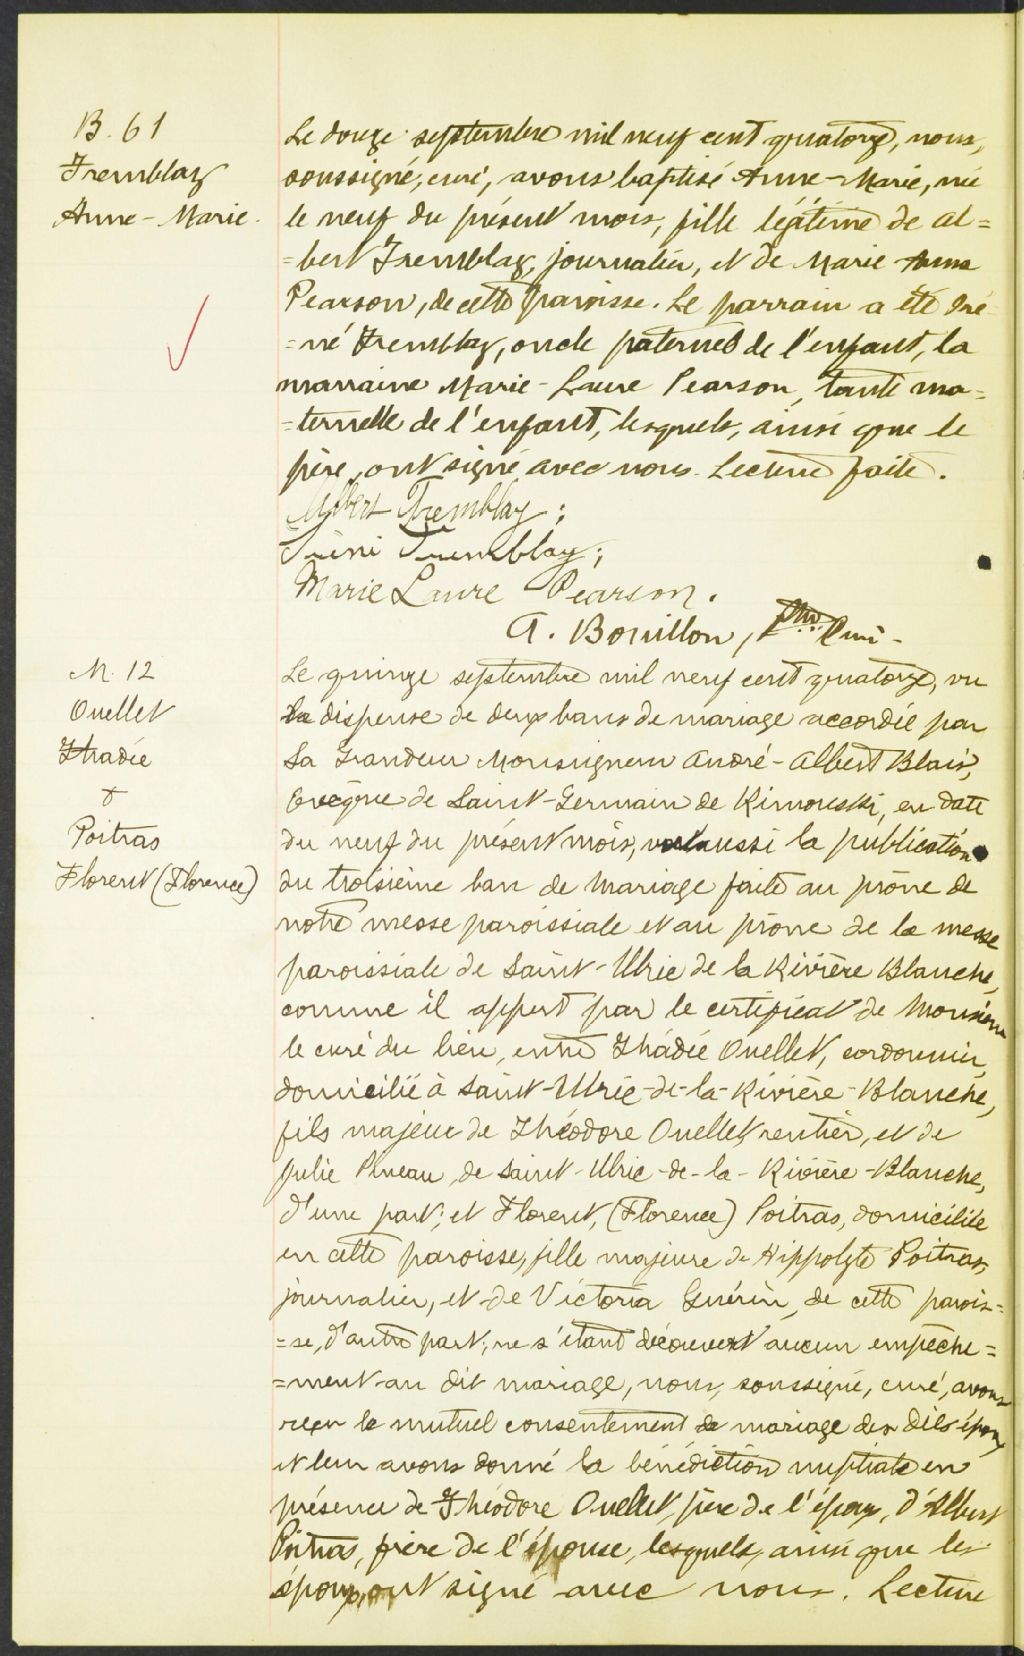 B. 61
Tremblay
Anne-Marie.
Le douze septembre mil neuf cent quatorze, nous,
soussigné, curé, avons baptisé Anne-Marie, née
le neuf du présent mois, fille légitime de Al=
=bert Tremblay, journalier, et de Marie Anna
Pearson, de cette paroisse. Le parrain a été Iré=
=né Tremblay, oncle paternel de l'enfant, la
marraine Marie-Laure Pearson, tante ma=
=ternelle de l'enfant, lesquels, ainsi que le
père, ont signé avec nous. Lecture faite.
Albert Tremblay;
Iréné Tremblay;
Marie Laure Pearson.
A. Bouillon, Ptre Curé-
M. 12
Ouellet
Thadée
&
Poitras
Florent (Florence)
Le quinze septembre mil neuf cent quatorze, vu
la dispense de deux bans de mariage accordée par
Sa Grandeur Monseigneur André-Albert Blais,
Evêque de Saint-Germain de Rimouski, en date
du neuf du présent mois, vu aussi la publication
du troisième ban de mariage faite au prône de
notre messe paroissiale et au prône de la messe
paroissiale de Saint-Ulric de la Rivière Blanche,
comme il appert par le certificat de Monsieur
le curé du lieu, entre Thadée Ouellet, cordonnier,
domicilié à Saint-Ulric-de-la-Rivière-Blanche,
fils majeur de Théodore Ouellet, rentier, et de
Julie Pineau, de Saint-Ulric-de-la-Rivière-Blanche,
d'une part; et Florent, (Florence) Poitras, domiciliée
en cette paroisse, fille majeure de Hippolyte Poitras,
journalier, et de Victoria Guérin, de cette parois=
=se, d'autre part; ne s'étant découvert aucun empêche=
=ment au dit mariage, nous, soussigné, curé, avons
reçu le mutuel consentement de mariage des dits époux
et leur avons donné la bénédiction nuptiale en
présence de Théodore Ouellet, père de l'époux, d'Albert
Poitras, frère de l'épouse, lesquels, ainsi que les
époux, ont signé avec nous. Lecture